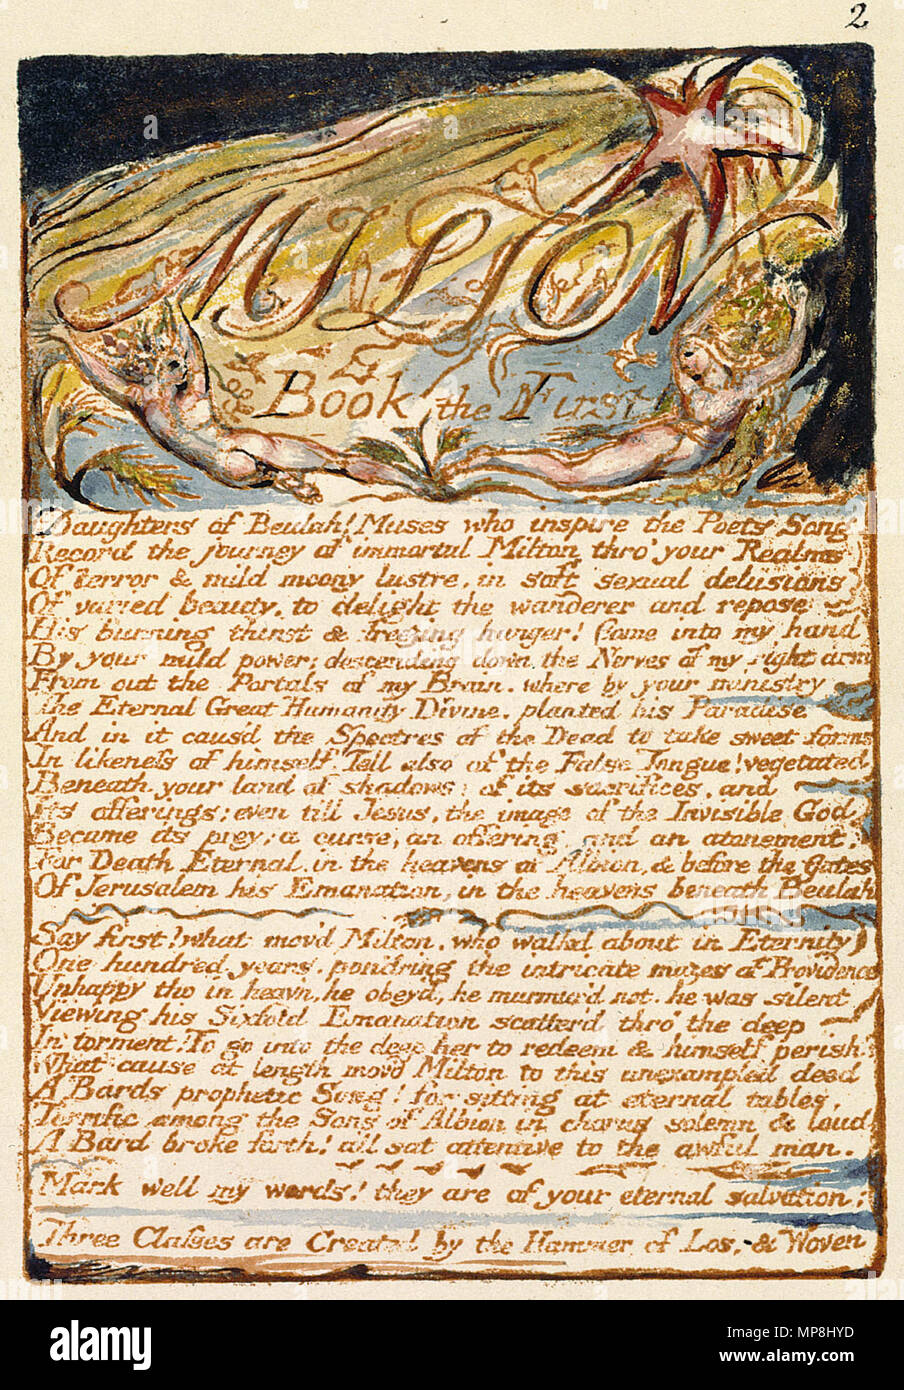 2
MILTON
Book the First
Daughters of Beulah! Muses who inspire the Poets Song
Record the journey of immortal Milton thro' your Realms
Of terror & mild moony lustre, in soft sexual delusions
Of varied beauty, to delight the wanderer and repose
His burning thirst & freezing hunger! Come into my hand
By your mild power; descending down the Nerves of my right arm
From out the Portals of my Brain, where by your ministry
The Eternal Great Humanity Divine. planted his Paradise
And in it caus'd the Spectres of the Dead to take sweet forms
In likeness of himself. Tell also of the False Tongue! vegetated
Beneath your land of shadows: of its sacrifices, and
Its offerings; even till Jesus, the image of the Invisible God
Became its prey; a curse, an offering, and an atonement,
For Death Eternal in the heavens of Albion, & before the Gates
Of Jerusalem his Emanation, in the heavens beneath Beulah
Say first! what mov'd Milton, who walkd about in Eternity
One hundred years, pondring the intricate mazes of Providence
Unhappy tho in heav'n, he obey'd, he murmur'd not. he was silent
Viewing his Sixfold Emanation scatter'd thro' the deep
In torment! To go into the deep her to redeem & himself perish?
What cause at length mov'd Milton to this unexampled deed
A Bards prophetic Song! for sitting at eternal tables,
Terrific among the Sons of Albion in chorus solemn & loud
A Bard broke forth! all sat attentive to the awful man.
Mark well my words! they are of your eternal salvation:
Three Classes are Created by the Hammer of Los, & Woven
alamy
Image ID: MP8HYD
www.alamy.com